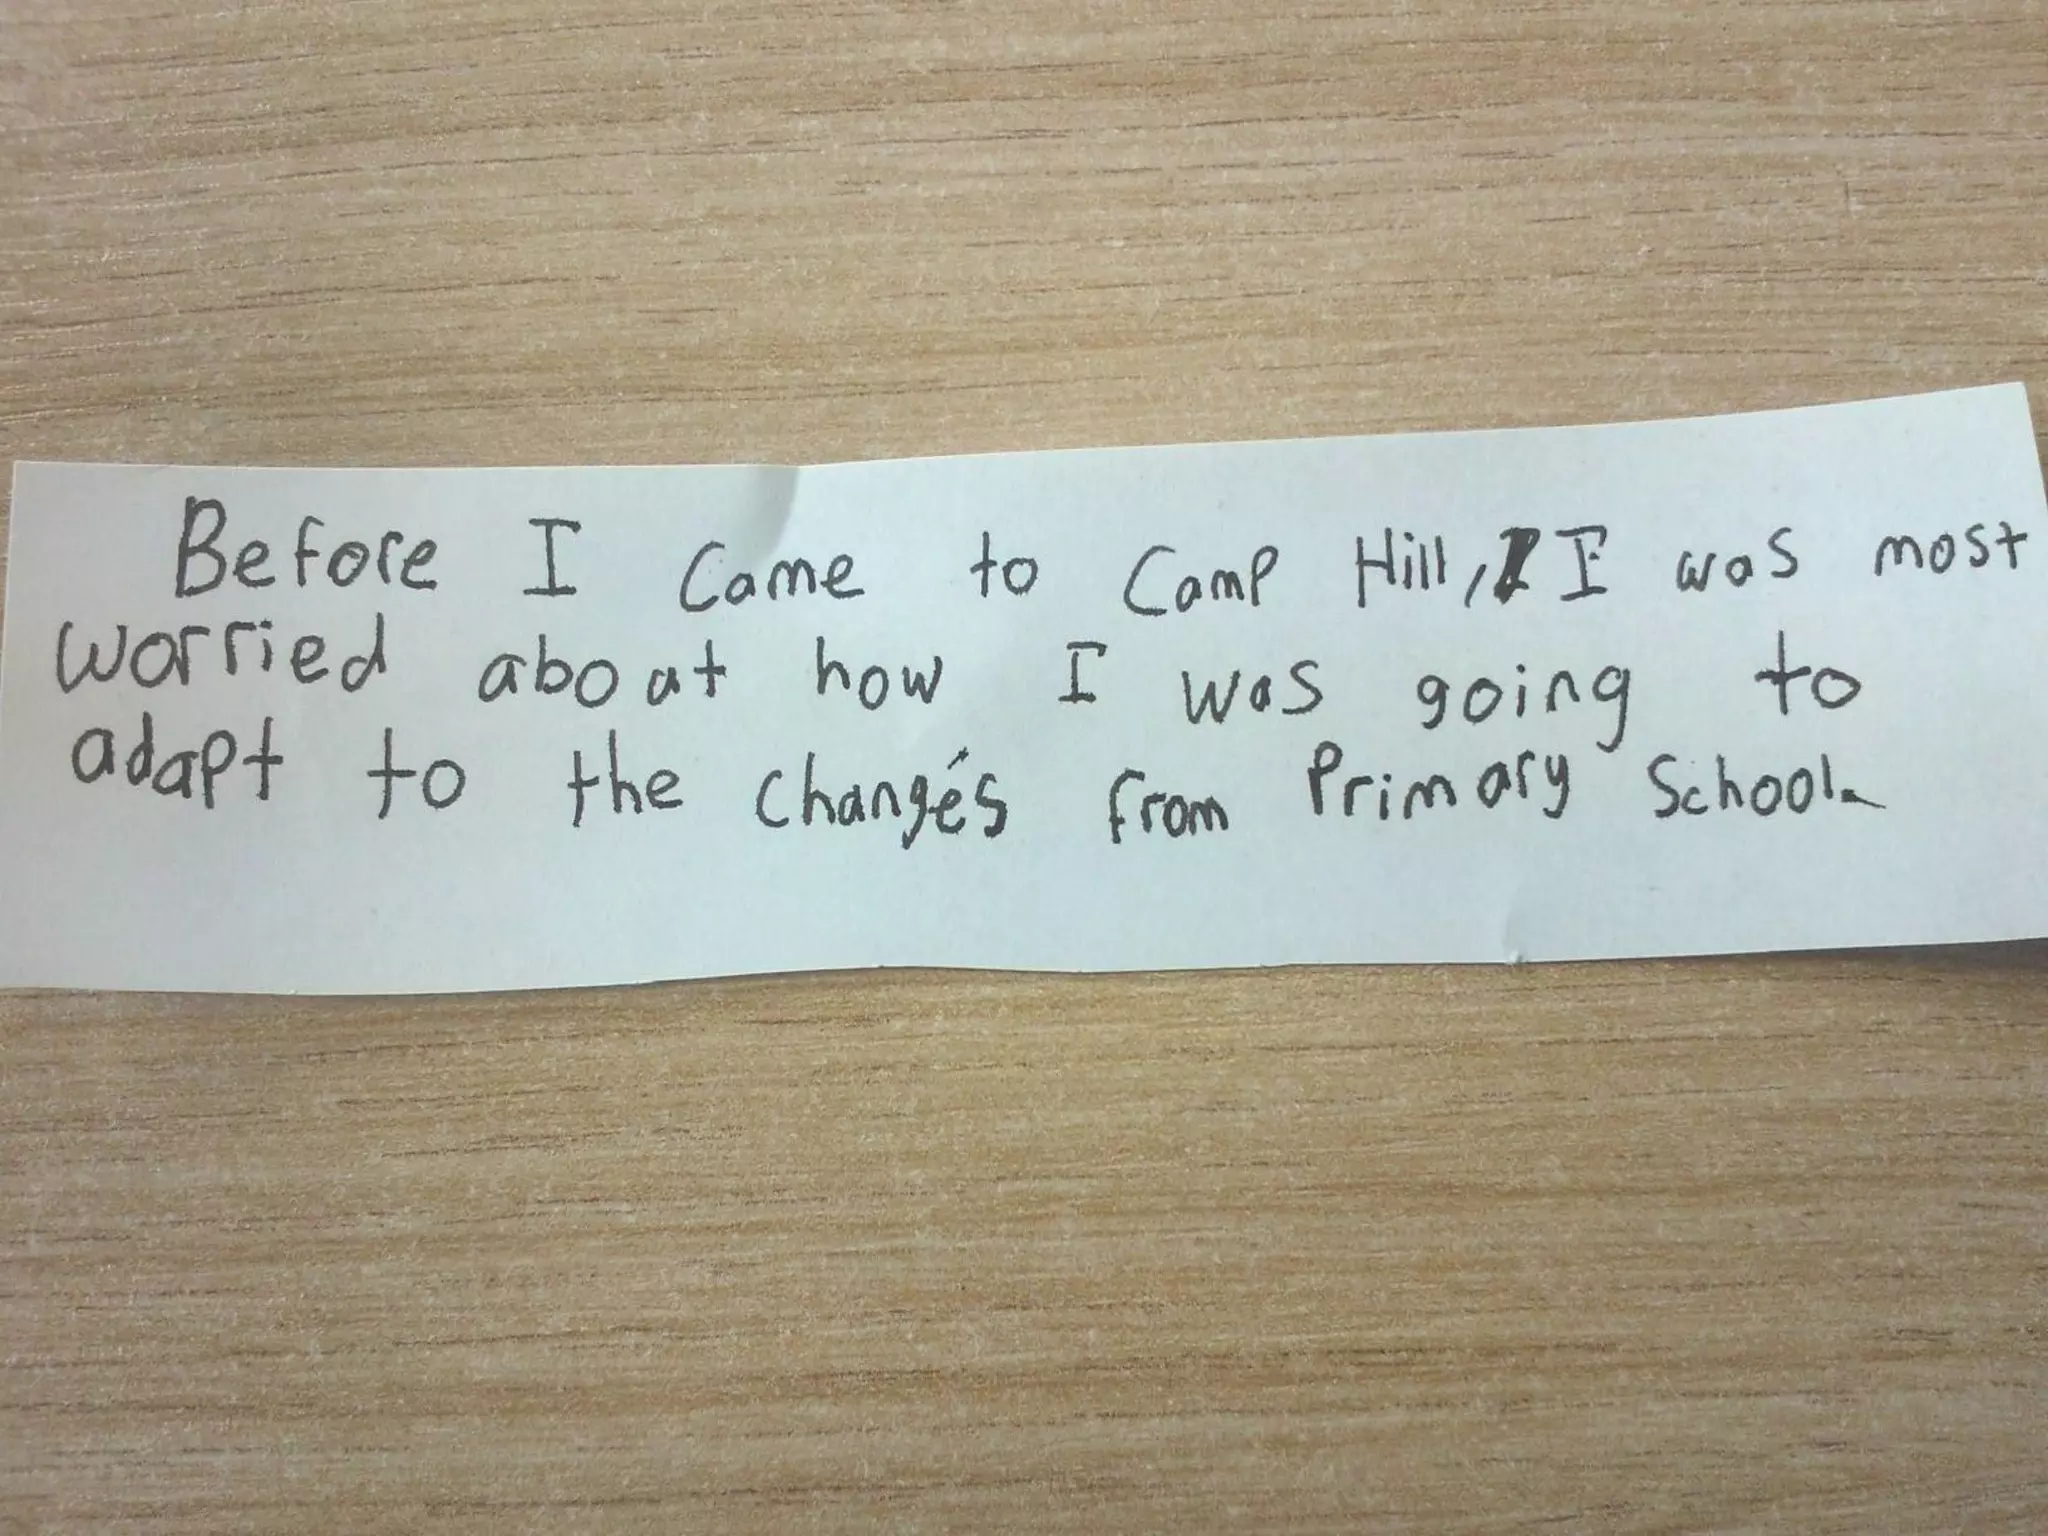 Before I came to Camp Hill, I was most
worried about how I was going to
adapt to the changes from Primary School.